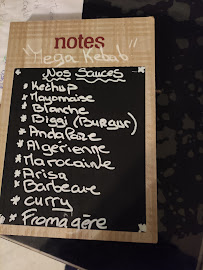 notes
"Mega Kebab"
Nos Sauces
Ketchup
Mayonnaise
Blanche
Biggi (Burgur)
Andalose
Algérienne
Marocaine
Arisa
Barbecue
curry
Fromagère